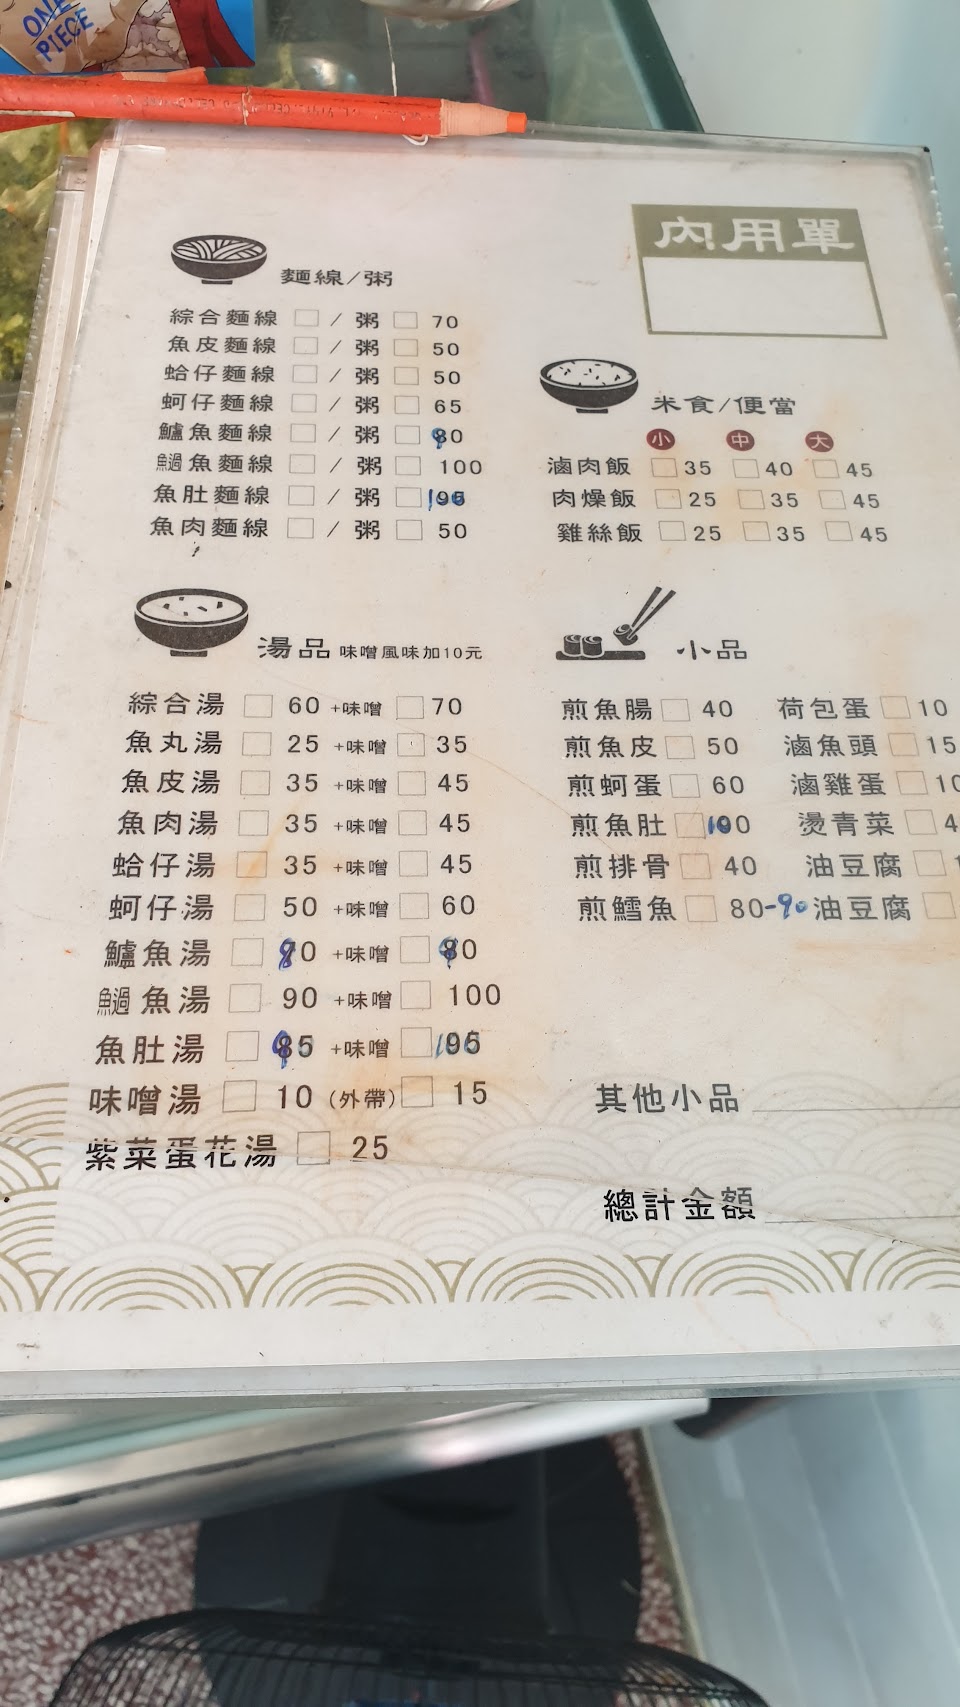 ONE
PIECE
內用單
麵線/粥
綜合麵線 □ / 粥 □ 70
魚皮麵線 □ / 粥 □ 50
蛤仔麵線 □ / 粥 □ 50
蚵仔麵線 □ / 粥 □ 65
鱸魚麵線 □ / 粥 □ 90
魚過魚麵線 □ / 粥 □ 100
魚肚麵線 □ / 粥 □
魚肉麵線 □ / 粥 □ 50
米食/便當
小 中 大
滷肉飯 □ 35 □ 40 □ 45
肉燥飯 □ 25 □ 35 □ 45
雞絲飯 □ 25 □ 35 □ 45
湯品 味噌風味加10元
綜合湯 □ 60 +味噌 □ 70
魚丸湯 □ 25 +味噌 □ 35
魚皮湯 □ 35 +味噌 □ 45
魚肉湯 □ 35 +味噌 □ 45
蛤仔湯 □ 35 +味噌 □ 45
蚵仔湯 □ 50 +味噌 □ 60
鱸魚湯 □ +味噌 □
魚過魚湯 □ 90 +味噌 □ 100
魚肚湯 □ +味噌 □
味噌湯 □ 10 (外帶) □ 15
紫菜蛋花湯 □ 25
小品
煎魚腸 □ 40 荷包蛋 □ 10
煎魚皮 □ 50 滷魚頭 □ 15
煎蚵蛋 □ 60 滷雞蛋 □ 10
煎魚肚 □ 100 燙青菜 □
煎排骨 □ 40 油豆腐 □
煎鱈魚 □ 80-90 油豆腐 □
其他小品
總計金額